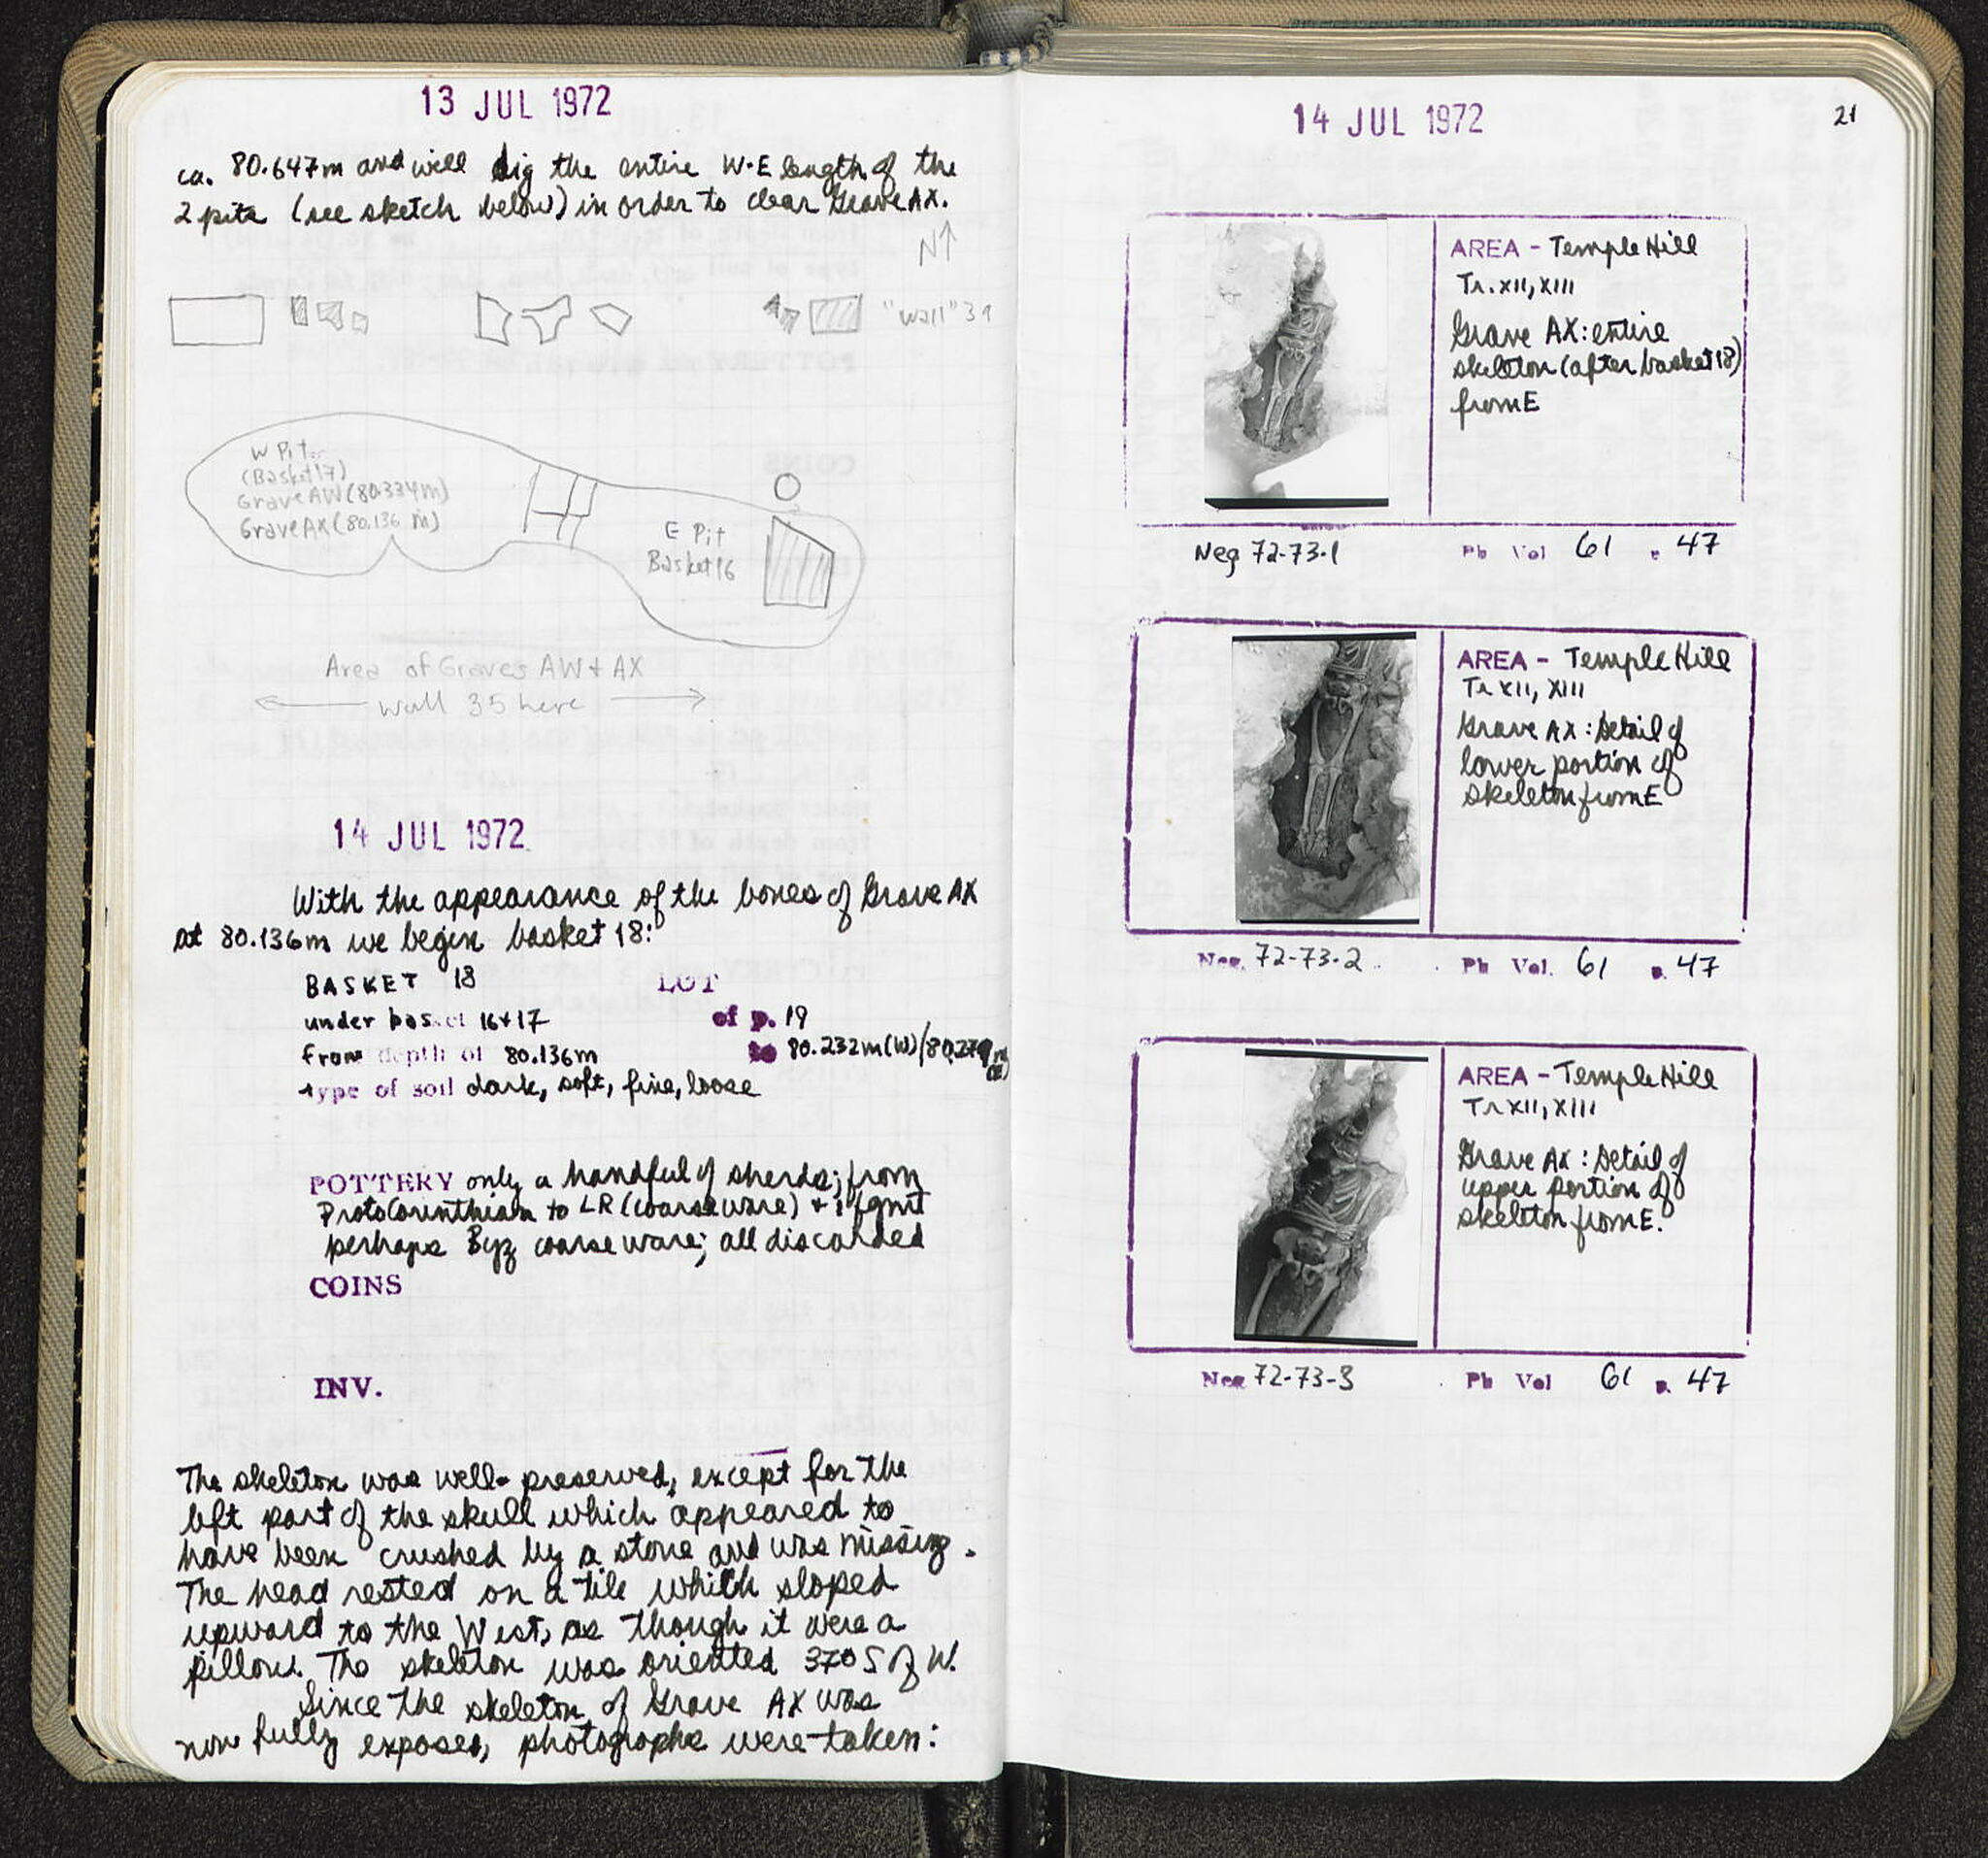 13 JUL 1972
ca. 80.647m and will dig the entire W-E length of the
2 pits (see sketch below) in order to clear Grave AX.
N↑
"wall" 31
W Pit
(Basket 17)
Grave AW (80.334m)
Grave AX (80.136 m)
E Pit
Basket 16
Area of Graves AW + AX
← wall 35 here →
14 JUL 1972
With the appearance of the bones of Grave AX
at 80.136m we begin basket 18:
BASKET 18 LOT
under basket 16+17 of p. 19
from depth of 80.136m to 80.232m(W)/
type of soil dark, soft, fine, loose
POTTERY only a handful of sherds; from
ProtoCorinthian to LR (coarse ware) + 1 fgmt
perhaps Byz coarse ware; all discarded
COINS
INV.
The skeleton was well-preserved, except for the
left part of the skull which appeared to
have been crushed by a stone and was missing.
The head rested on a tile which sloped
upward to the West, as though it were a
pillow. The skeleton was oriented 37° S of W.
Since the skeleton of Grave AX was
now fully exposed, photographs were taken:
14 JUL 1972
21
AREA - Temple Hill
Tr. XII, XIII
Grave AX: entire
skeleton (after basket 18)
from E
Neg 72-73-1 Ph Vol 61 p. 47
AREA - Temple Hill
Tr XII, XIII
Grave AX: Detail of
lower portion of
skeleton from E
Neg. 72-73-2 Ph Vol. 61 p. 47
AREA - Temple Hill
Tr XII, XIII
Grave AX: Detail of
upper portion of
skeleton from E.
Neg 72-73-3 Ph Vol 61 p. 47